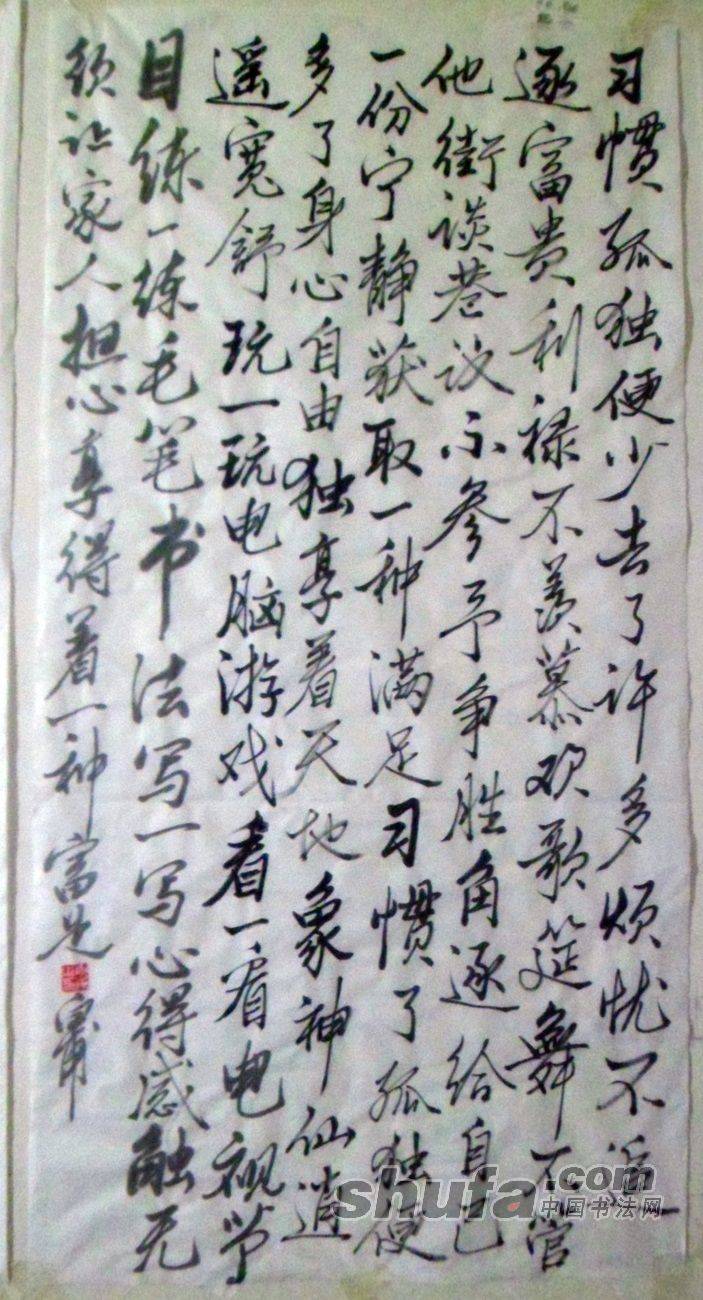 习惯孤独便少去了许多烦忧不追
逐富贵利禄不羡慕欢歌筵舞不管
他街谈巷议不参予争胜角逐给自己
一份宁静获取一种满足习惯了孤独便
多了身心自由独享着天地象神仙逍
遥宽舒玩一玩电脑游戏看一看电视节
目练一练毛笔书法写一写心得感触无
须让家人担心享得着一种富足
shufa.com
中国书法网